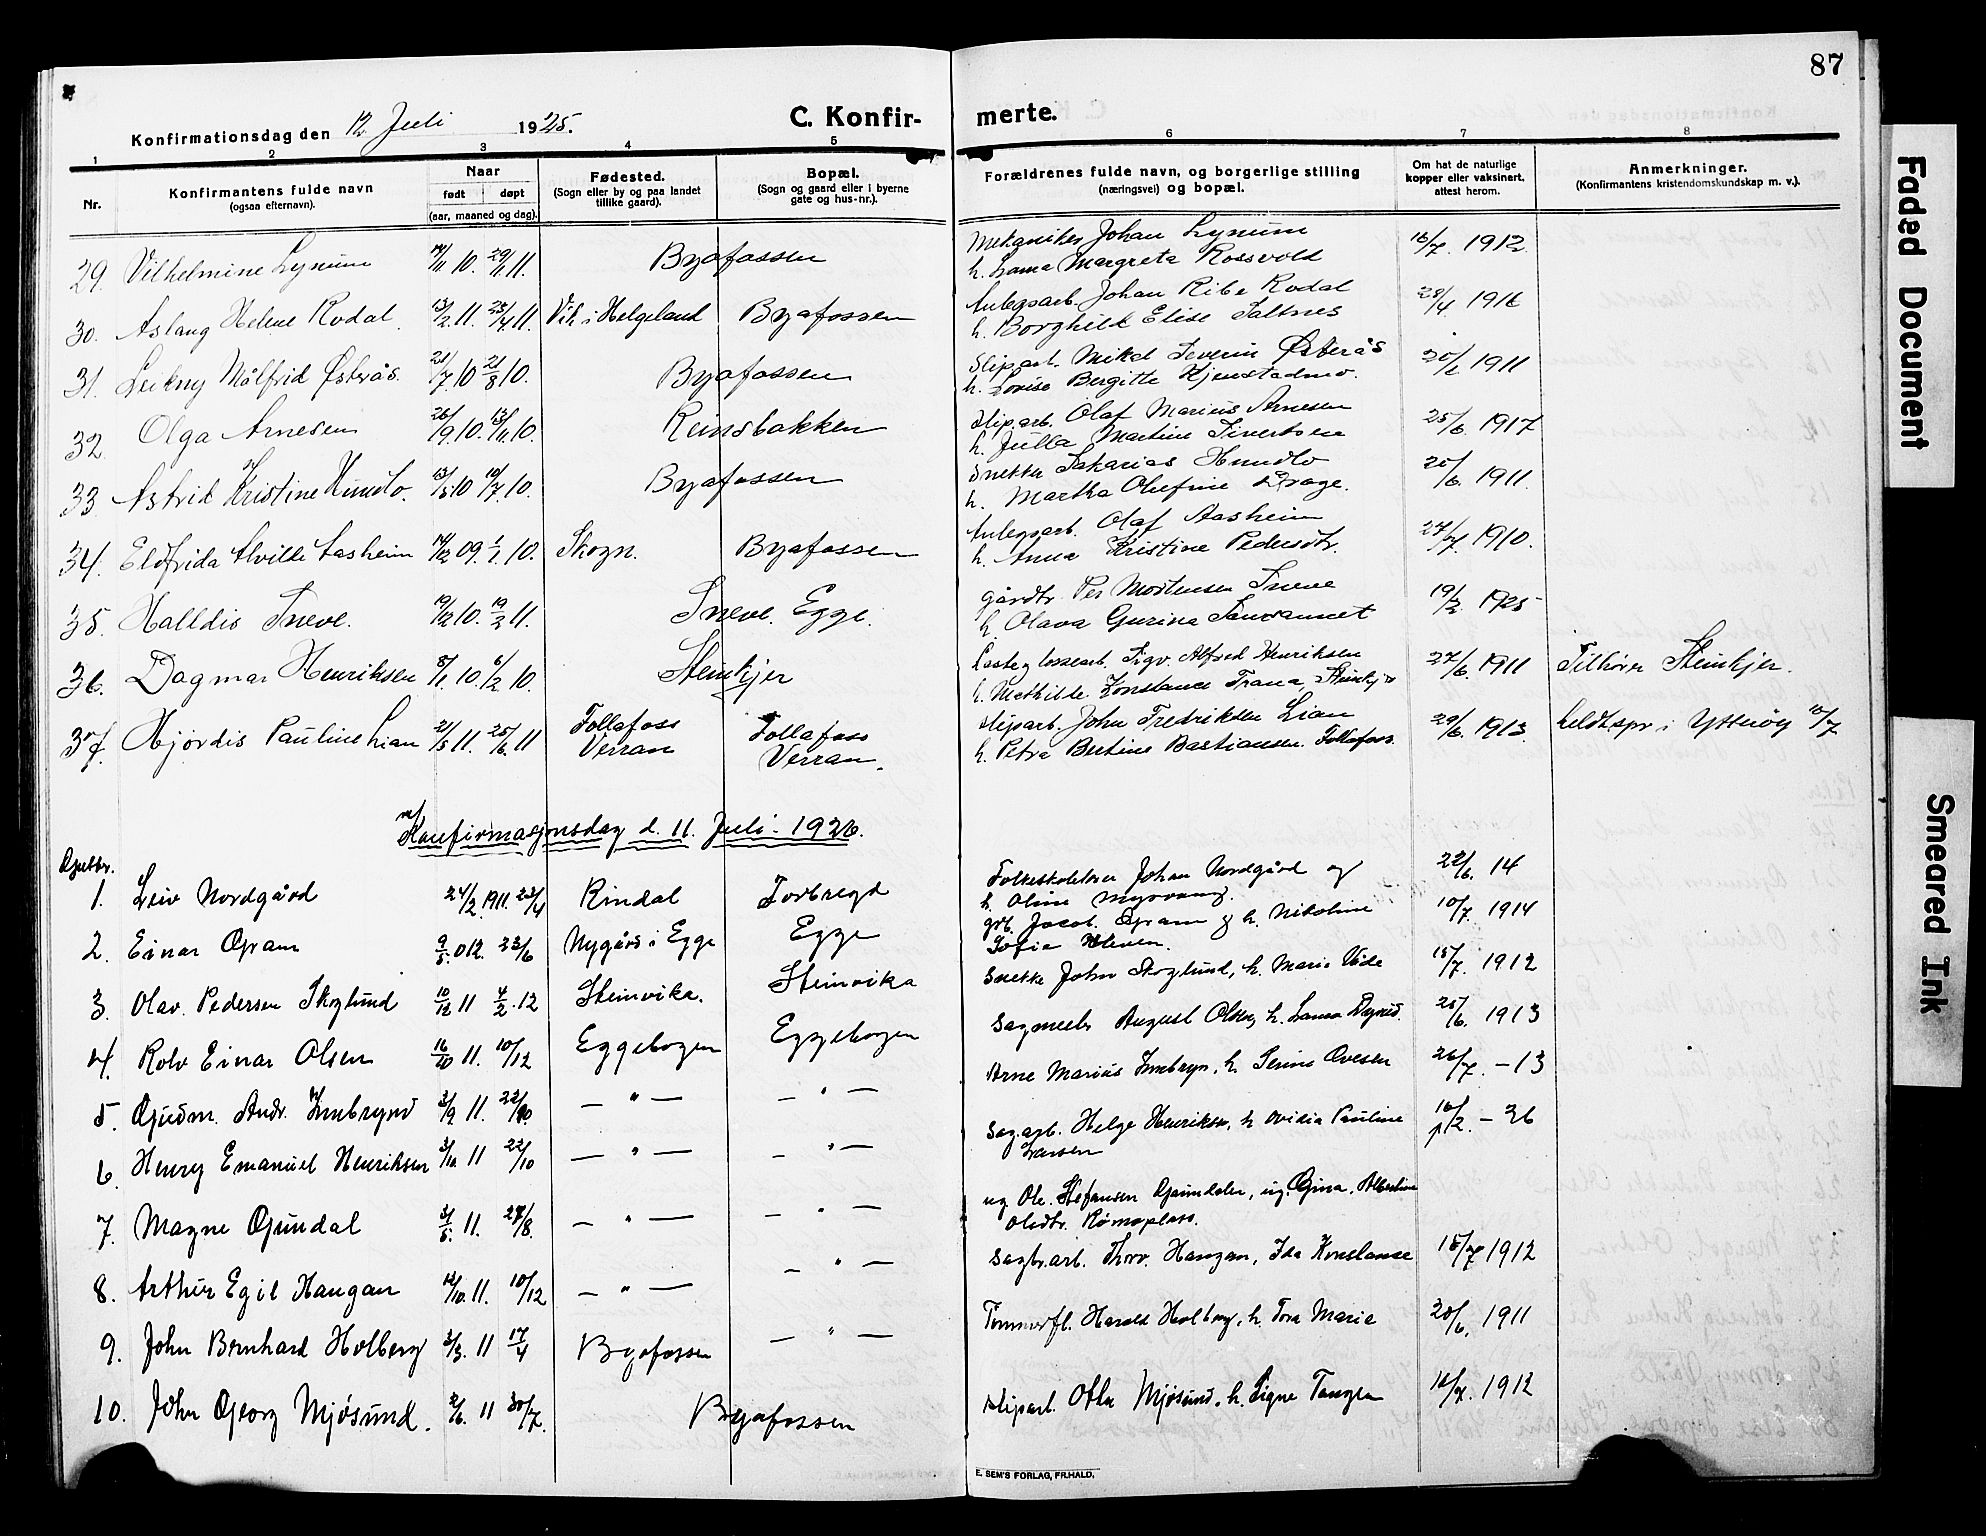 87
Konfirmationsdag den 12 Juli 1925. C. Konfirmerte.
1 2 3 4 5 6 7 8
Nr. Konfirmantens fulde navn (ogsaa efternavn). Naar født døpt (aar, maaned og dag). Fødested. (Sogn eller by og paa landet tillike gaard). Bopæl. (Sogn og gaard eller i byerne gate og hus-nr.). Forældrenes fulde navn, og borgerlige stilling (næringsvei) og bopæl. Om hat de naturlige kopper eller vaksinert, attest herom. Anmerkninger. (Konfirmantens kristendomskundskap m. v.).
29. Vilhelmine Lynum 14/11 10. 29/1 11. Byafossen Mekaniker Johan Lynum 16/7. 1912
h. Lama Margreta Rossvold
30. Aslaug Helene Rodal 13/2 11. 23/4 11. Vik i Helgeland Byafossen Anlegsarb. Johan Ribe Rodal 28/4 1916
h. Borghild Elise Saltnes
31. Leikny Målfrid Østerås. 21/7 10 21/8 10. Byafossen Sliparb. Mikal Severin Østerås 1911
h. Lovise Bergitte Hjemstadmo.
32 Olga Arnesen 26/9 10. 13/11 10. Reinsbakken Sliparb. Olaf Marius Arnesen 25/6. 1917
h. Julla Martine Sivertsen
33. Astrid Kristine Hundlo. 13/5 10 10/7. 10. Byafossen Snekker Sakarias Hundlo 20/6. 1911.
h. Martha Olufine Drage.
34. Eldfrida Alvilde Aasheim 14/12 09. 1/1. 10. Skogn. Byafossen Anlegsarb. Olaf Aasheim 27/7. 1910.
h. Anna Kristine Pedersdtr.
35. Halldis Sneve. 19/12 10. 19/2 11. Sneve. Egge. gårdbr Per Mortensen Sneve 19/2. 1925
h. Olava Gurina
36. Dagmar Henriksen 8/1. 10. 6/2 10. Steinkjer Laste og lossearb. Sigv. Alfred Henriksen 27/6. 1911 Tilhører Steinkjer.
h. Mathilde Konstance Trana, Steinkjer
37. Hjördis Pauline Lian 21/5 11. 25/6. 11 Follafoss Verran Follafoss Verran. Sliparb. John Fredriksen Lian 29/6. 1913. heldtspr i Ytterøy 10/7
h. Petra Bertine Bastiansen. Follafoss.
Konfirmasjonsdag d. 11. Juli 1926.
Gutter.
1. Leiv Nordgård 24/2. 1911. 23/4 Rindal Forbregd Folkeskolelærer Johan Nordgård og 22/6. 14
h. Oline Myrvang
2. Einar Gram 9/5. 012. 23/6 Nygård i Egge Egge grb. Jacob Gram & h. Nikoline 10/7. 1914
Sofia Kleven.
3. Olav Pedersen Skoglund 10/12 11 4/2. 12 Steinvika. Steinvika Snekke John Skoglund, h. Marie Våde 15/7. 1912
4. Rolv Einar Olsen 16/10 11. 10/12 Eggebogen Eggebogen Sagmester August Olsen, h. Laura 25/6. 1913
5. Gudm. Andr. Innbrynd 3/9 11. 22/10 — " — — " — Arne Marius Innbryn, h. Serine Ovesen 26/7. – 13
6. Henry Emanuel Henriksen 3/10. 11 22/10 — " — — " — Sag.arb. Helge Henriksen, h. Ovidia Pauline 16/2. – 26
Larsen
7. Magne Gjundal 3/5. 11. 27/8. — " — — " — ug. Ole Stefansen Gaundalen, ug. Gina Albertine
Olsdtr. Rømoplass.
8. Arthur Egil Haugan 12/10. 11. 10/12 — " — — " — Sagbr.arb. Thorv. Haugan, Ida Konstanse 15/7 1912
9. John Bernhard Holberg 3/3. 11 17/4 Byafossen — " — Tømmerfl. Harald Holberg, h. Tora Marie 20/6. 1911
10. John Georg Mjøsund. 2/6. 11 30/7. Byafossen Sliparb. Otto Mjøsund, h. Signe Tangen 12/7. 1912
E. SEM'S FORLAG, FR.HALD.
Faded Document
Smeared Ink